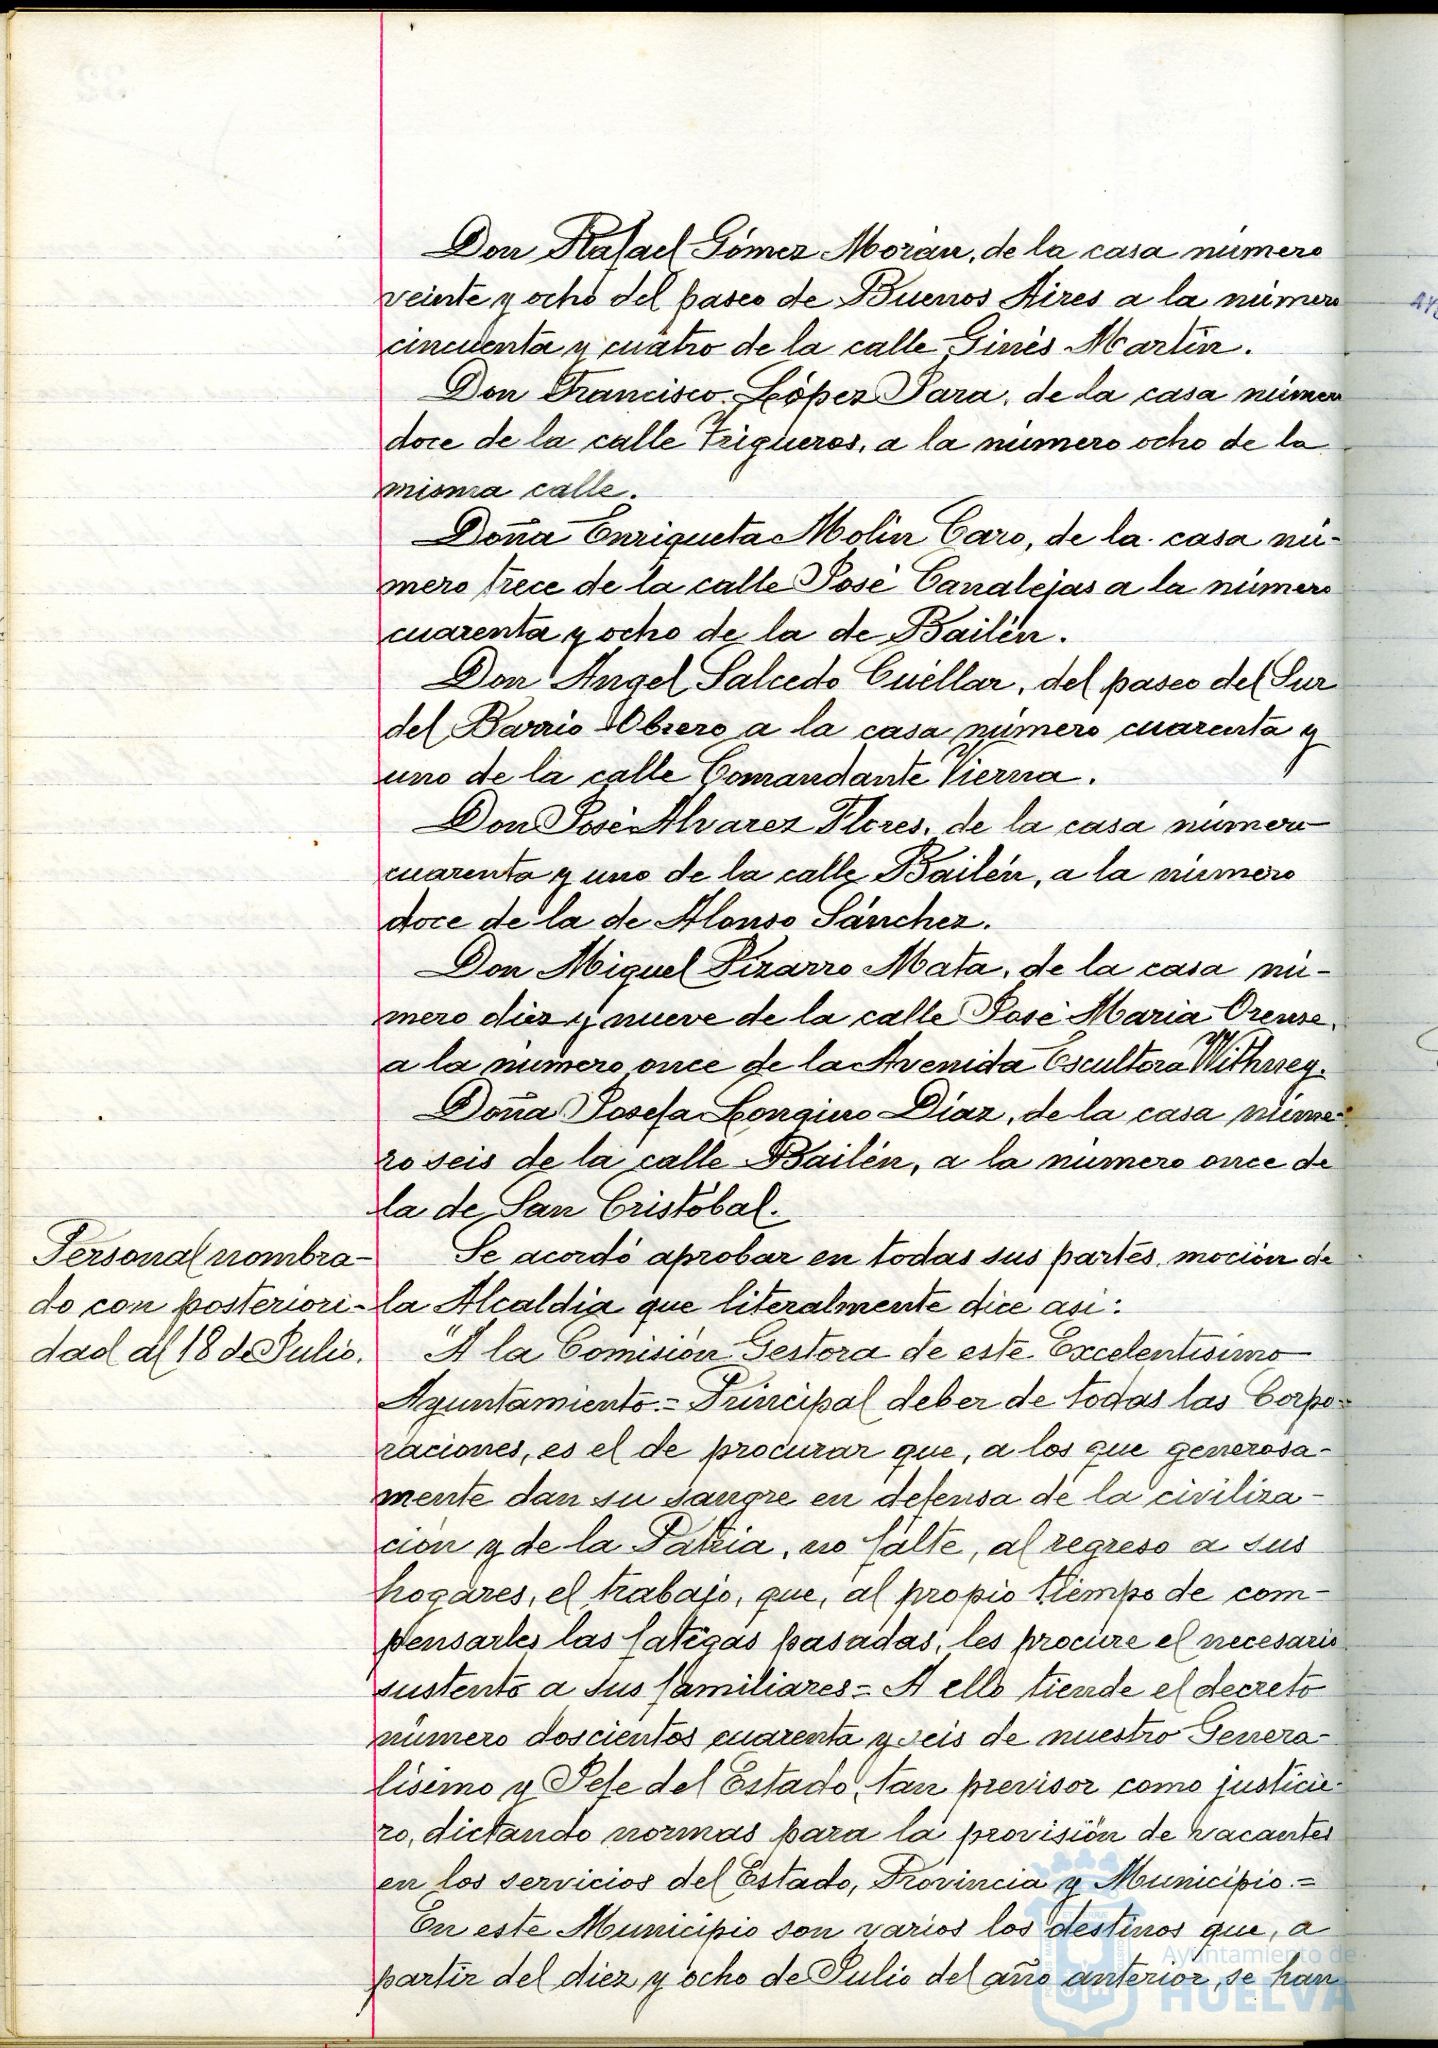 Don Rafael Gómez Morán, de la casa número
veinte y ocho del paseo de Buenos Aires a la número
cincuenta y cuatro de la calle Ginés Martín.
Don Francisco López Para, de la casa número
doce de la calle Trigueros, a la número ocho de la
misma calle.
Doña Enriqueta Molin Caro, de la casa nú-
mero trece de la calle José Canalejas a la número
cuarenta y ocho de la de Bailén.
Don Angel Salcedo Cuéllar, del paseo del Sur
del Barrio Obrero a la casa número cuarenta y
uno de la calle Comandante Vierna.
Don José Alvarez Flores, de la casa número
cuarenta y uno de la calle Bailén, a la número
doce de la de Alonso Sánchez.
Don Miguel Pizarro Mata, de la casa nú-
mero diez y nueve de la calle José Maria Orense,
a la número once de la Avenida Escultora Withney.
Doña Josefa Longino Díaz, de la casa núme-
ro seis de la calle Bailén, a la número once de
la de San Cristóbal.
Personal nombra-
do con posteriori-
dad al 18 de Julio.
Se acordó aprobar en todas sus partes, moción de
la Alcaldia que literalmente dice asi:
"A la Comisión Gestora de este Excelentísimo
Ayuntamiento.= Principal deber de todas las Corpo-
raciones, es el de procurar que, a los que generosa-
mente dan su sangre en defensa de la civiliza-
ción y de la Patria, no falte, al regreso a sus
hogares, el trabajo, que, al propio tiempo de com-
pensarles las fatigas pasadas, les procure el necesario
sustento a sus familiares= A ello tiende el decreto
número doscientos cuarenta y seis de nuestro Genera-
lísimo y Jefe del Estado, tan previsor como justicie-
ro, dictando normas para la provisión de vacantes
en los servicios del Estado, Provincia y Municipio.=
En este Municipio son varios los destinos que, a
partir del diez y ocho de Julio del año anterior, se han
Ayuntamiento de
HUELVA